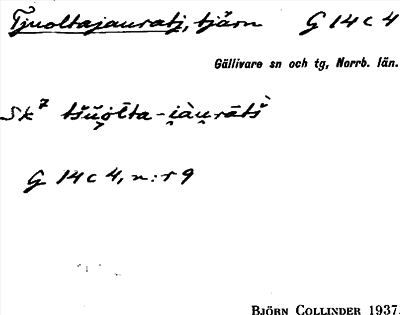 Tjuoltajauratj, tjärn G 14 c 4
Gällivare sn och tg, Norrb. län.
Sk⁷ tšu̯ŏlta-i̯àu̯rātš̀
G 14 c 4, n:r 9
BJÖRN COLLINDER 1937.